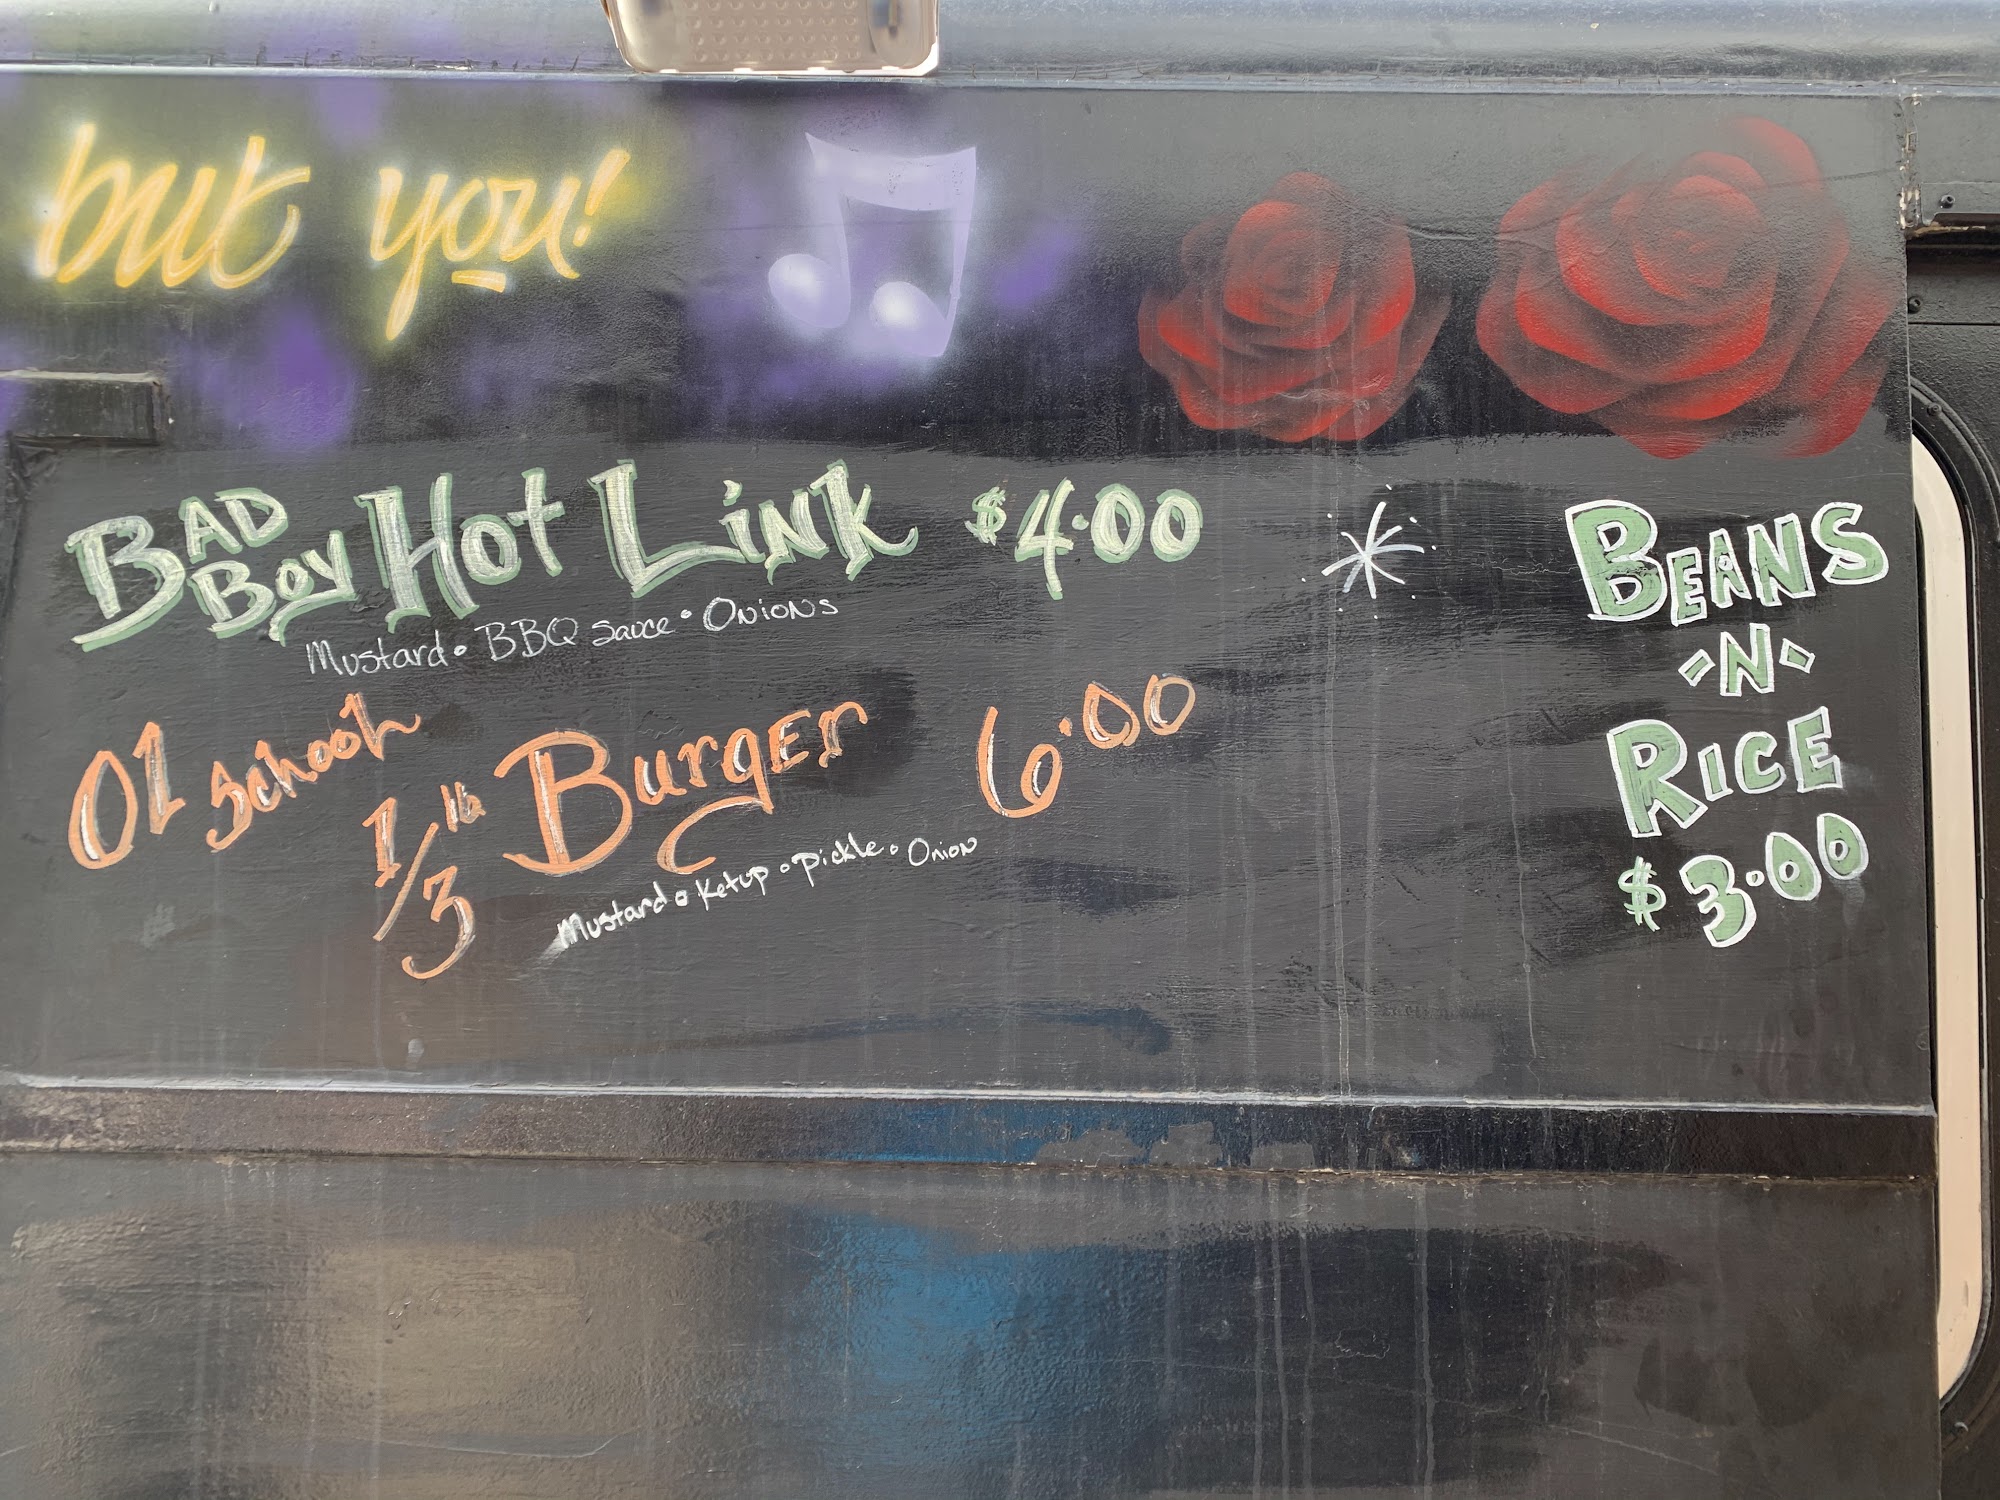 but you!
BAD BOY HOT LINK $4.00
Mustard • BBQ sauce • Onions
Ol School 1/3 lb Burger 6.00
Mustard • Ketup • Pickle • Onion
BEANS
-N-
RICE
$3.00